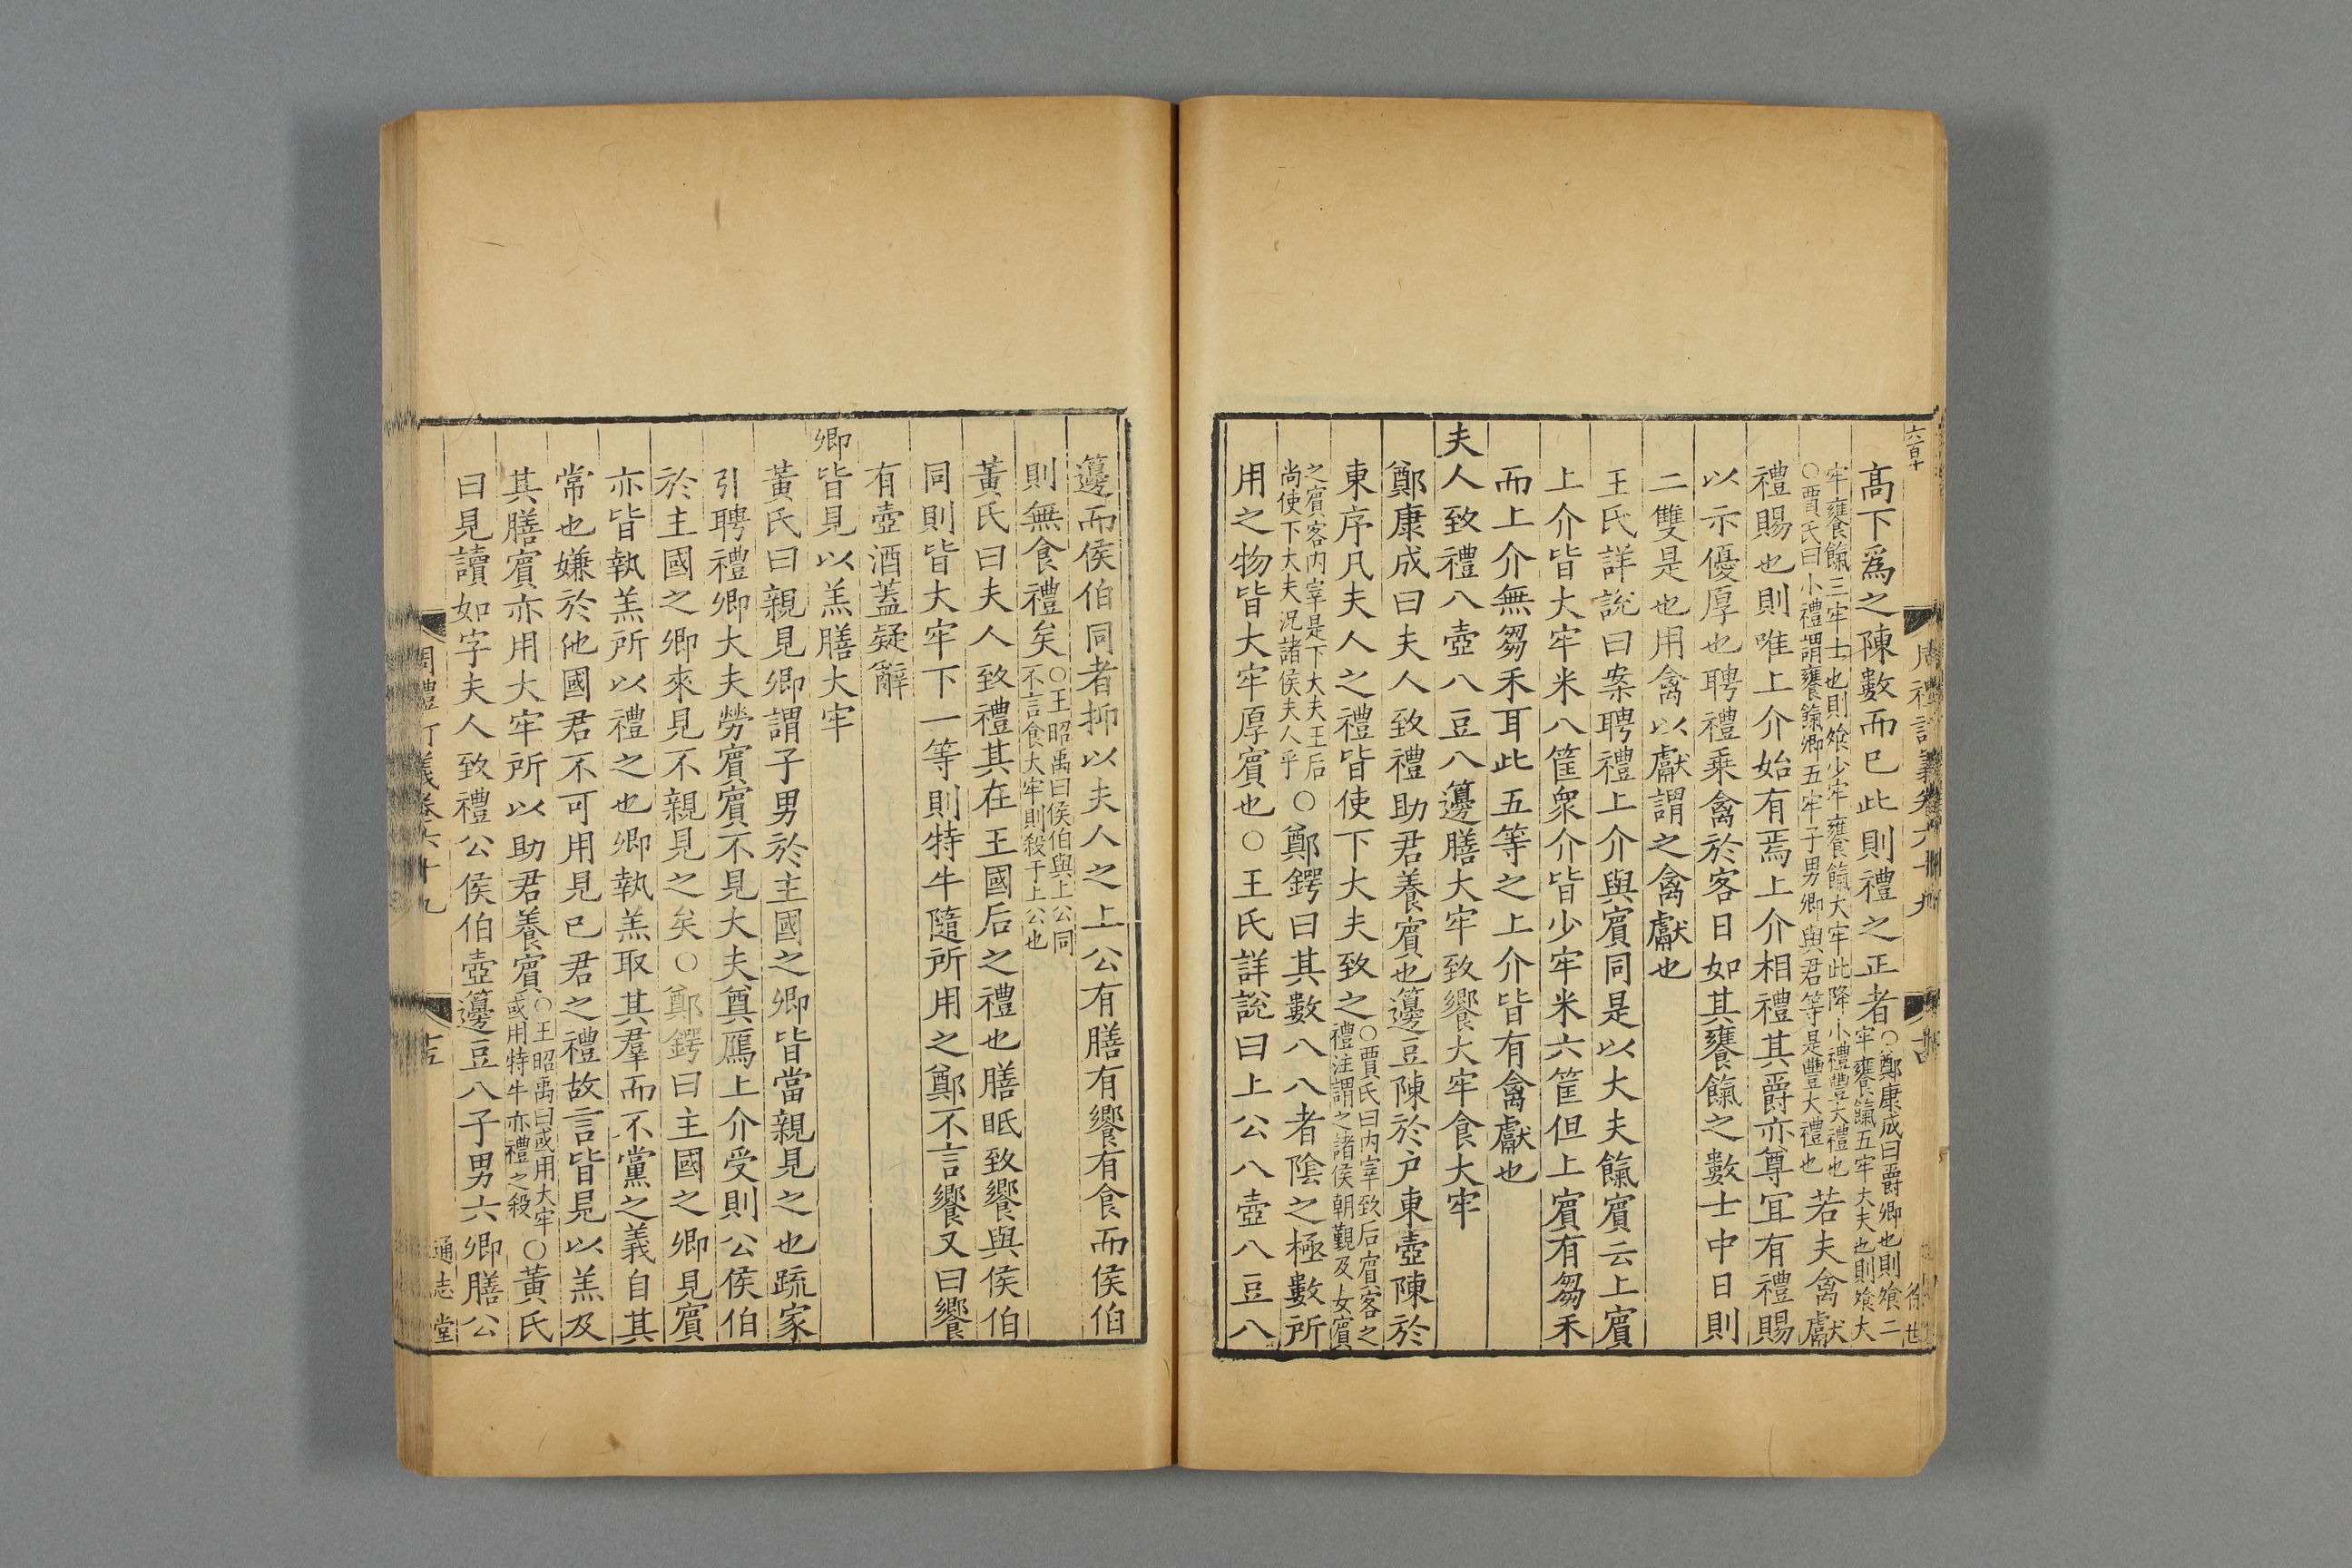 六百十
高下爲之陳數而巳此則禮之正者○鄭康成曰爵卿也則飱二牢饔餼五牢大夫也則飱大
牢饔餼三牢士也則飱少牢饔餼大牢此降小禮豐大禮也○賈氏曰小禮謂饔餼卿五牢子男卿與君等是豐大禮也若夫禽獻
禮賜也則唯上介始有焉上介相禮其爵亦尊冝有禮賜
以示優厚也聘禮乗禽於客日如其饔餼之數士中日則
二雙是也用禽以獻謂之禽獻也
王氏詳說曰案聘禮上介與賔同是以大夫餼賔云上賔
上介皆大牢米八筐衆介皆少牢米六筐但上賔有芻禾
而上介無芻禾耳此五等之上介皆有禽獻也
夫人致禮八壺八豆八籩膳大牢致饗大牢食大牢
鄭康成曰夫人致禮助君養賔也籩豆陳於户東壺陳於
東序凡夫人之禮皆使下大夫致之○賈氏曰内宰致后賔客之禮注謂之諸侯朝覲及女賔
之賔客内宰是下大夫王后尚使下大夫况諸侯夫人乎○鄭鍔曰其數八八者陰之極數所
用之物皆大牢厚賔也○王氏詳說曰上公八壺八豆八
籩而侯伯同者抑以夫人之上公有膳有饗有食而侯伯
則無食禮矣○王昭禹曰侯伯與上公同不言食大牢則殺于上公也
黃氏曰夫人致禮其在王國后之禮也膳眂致饗與侯伯
同則皆大牢下一等則特牛隨所用之鄭不言饗又曰饗
有壺酒蓋疑辭
卿皆見以羔膳大牢
黃氏曰親見卿謂子男於主國之卿皆當親見之也䟽家
引聘禮卿大夫勞賔賔不見大夫奠鴈上介受則公侯伯
於主國之卿來見不親見之矣○鄭鍔曰主國之卿見賔
亦皆執羔所以禮之也卿執羔取其羣而不黨之義自其
常也嫌於他國君不可用見巳君之禮故言皆見以羔及
其膳賔亦用大牢所以助君養賔○王昭禹曰或用大牢或用特牛亦禮之殺○黃氏
曰見讀如字夫人致禮公侯伯壺籩豆八子男六卿膳公
通志堂